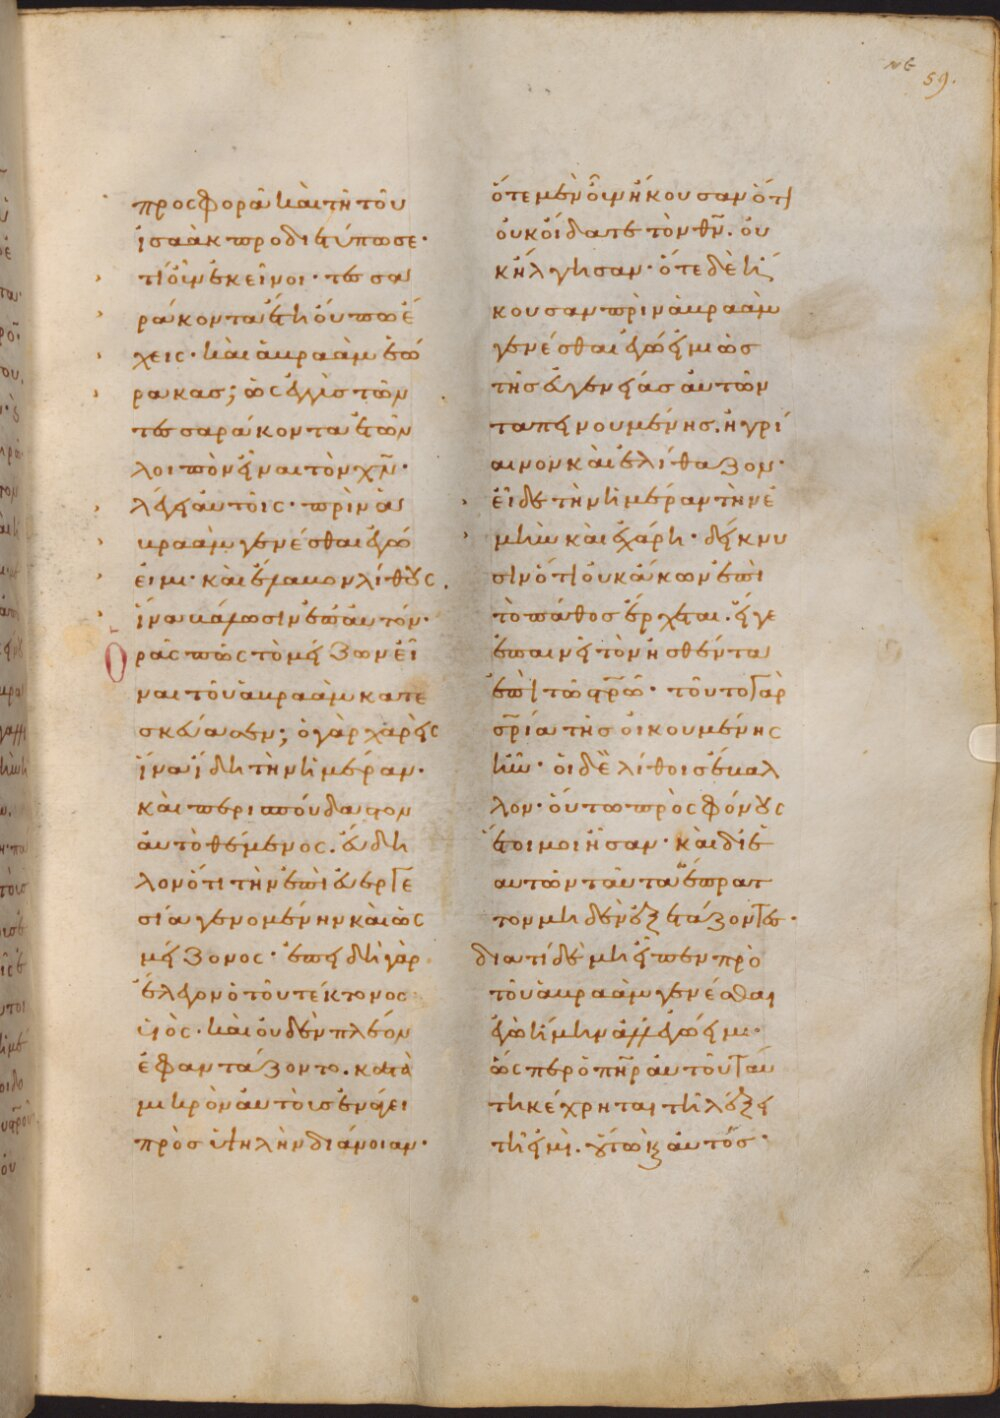 νε
59.
προσφορᾶ καὶ τῆ τοῦ
ἰσαὰκ προδιετύπωσε·
τί οὖν ἐκεῖνοι· τεσσα
ράκοντα ἔτη οὔπω ἔ
χεις· καὶ ἀβραὰμ ἑώ
ρακας; ὡς ἐγγὺς τῶν
τεσσαράκοντα ἐτῶν
λοιπὸν εἶναι τὸν χν·
λέγει αὐτοῖς· πρὶν ἀ
βραὰμ γενέσθαι ἐγώ
εἰμι· καὶ ἔλαβον λίθους
ἵνα βάλωσιν ἐπ' αὐτόν·
Ορᾶς πῶς τὸ μείζων εἶ
ναι τοῦ ἀβραὰμ κατε
σκεύασεν; ὁ γὰρ χαρεὶς
ἵνα ἴδη τὴν ἡμέραν·
καὶ περισπούδαστον
αὐτὸ θέμενος. εὔδη
λον ὅτι τὴν ἐπὶ εὐεργε
σία γενομένην καὶ ὡς
μείζονος· ἐπειδὴ γὰρ
ἔλεγον ὁ τοῦ τέκτονος
υἱὸς· καὶ οὐδὲν πλέον
ἐφαντάζοντο. κατὰ
μικρὸν αὐτοὺς ἐνάγει
πρὸς ὑψηλὴν διάνοιαν·
ὅτε μὲν οὖν ἤκουσαν ὅτι
οὐκ οἴδατε τὸν θν. οὐ
κ ἤλγησαν· ὅτε δὲ ἤ
κουσαν πρὶν ἀβραὰμ
γενέσθαι ἐγώ εἰμι ὡς
τῆς εὐγενείας αὐτῶν
ταπεινουμένης. ἠγρί
αινον καὶ ἐλίθαζον·
εἶδε τὴν ἡμέραν τὴν ἐ
μὴν καὶ ἐχάρη· δείκνυ
σιν ὅτι οὐκ ἄκων ἐπὶ
τὸ πάθος ἔρχεται. εἴγε
ἐπαινεῖ τὸν ἡσθέντα
ἐπὶ τῶ στρῶ· τοῦτο γὰρ
σρία τῆς οἰκουμένης
ἦν· οἱ δὲ λίθοις ἔβαλ
λον· οὕτω πρὸς φόνους
ἕτοιμοι ἦσαν· καὶ δι' ἑ
αυτῶν ταῦτα ἔπρατ
τον μηδὲν ἐξετάζοντες·
διατί δὲ μὴ εἶπεν πρὸ
τοῦ ἀβραὰμ γενέσθαι
ἐγὼ ἤμην ἀλλ' ἐγώ εἰμι·
ὥσπερ ὁ πηρ αὐτοῦ ταύ
τη κέχρηται τῆ λέξει
τῆ εἰμὶ. οὕτω καὶ αὐτὸς·